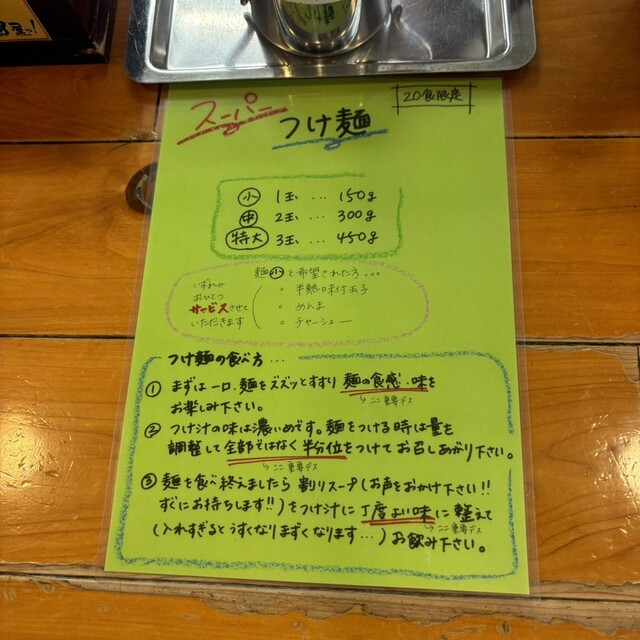 スーパー
つけ麺
20食限定
小 1玉 … 150g
中 2玉 … 300g
特大 3玉 … 450g
麺小を希望された方…
いずれか
おひとつ
サービスさせて
いただきます
。半熟味付玉子
。めんま
。チャーシュー
つけ麺の食べ方…
① まずは一口、麺をズズッとすすり 麺の食感・味を
お楽しみ下さい。
↳ここ重要デス
② つけ汁の味は濃いめです。麺をつける時は量を
調整して全部ではなく半分位をつけてお召しあがり下さい。
↳ここ重要デス
③ 麺を食べ終えましたら 割りスープ(お声をおかけ下さい!!
すぐにお持ちします!!)をつけ汁に丁度よい味に整えて
↳ここ重要デス
(入れすぎるとうすくなりまずくなります…)お飲み下さい。